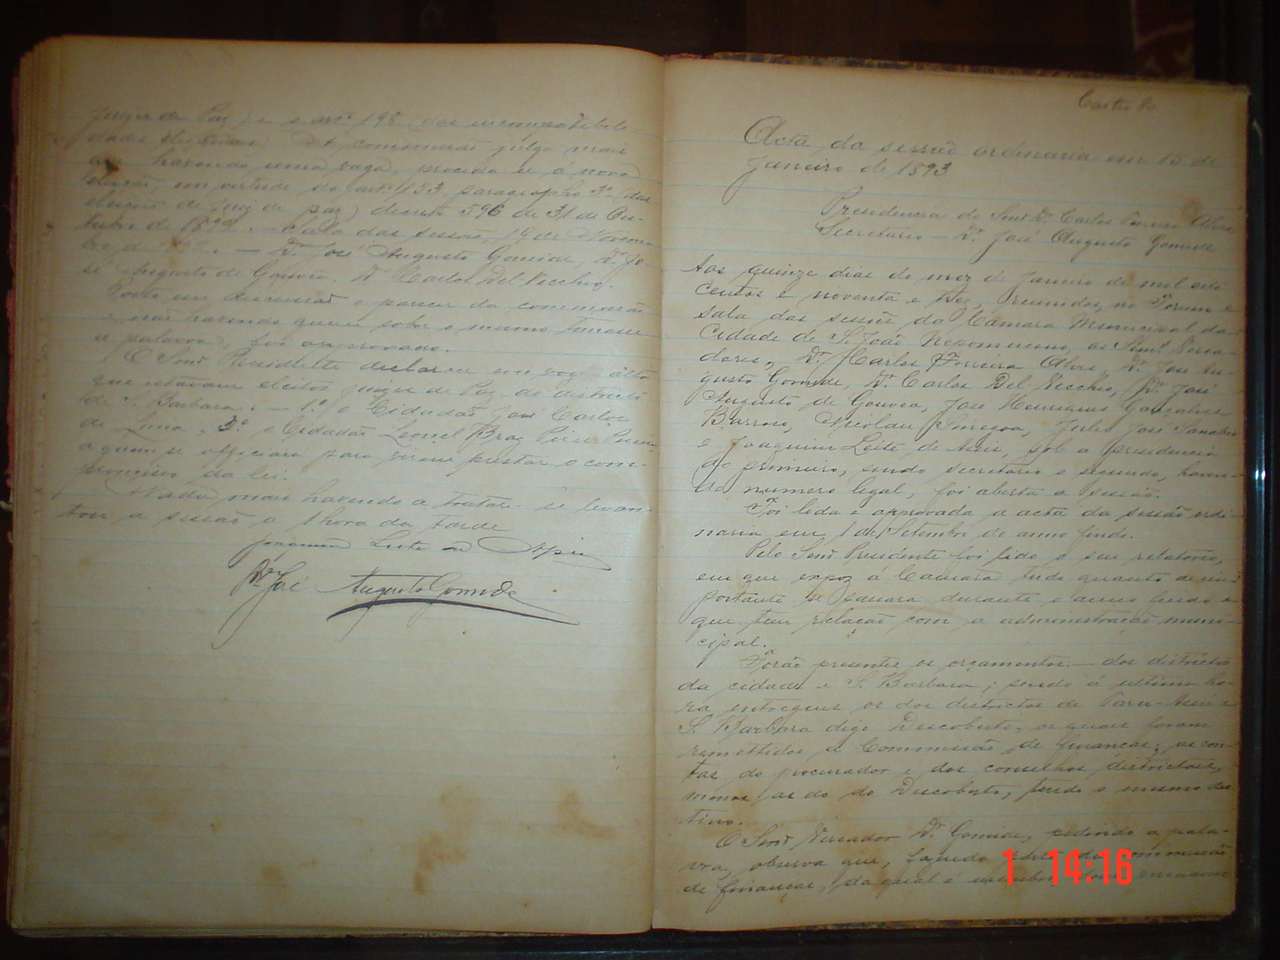 juizes de Paz) e o art. 198 (das incompatibili-
dades eleitoraes) A commissão julga mais
que havendo uma vaga, proceda-se á nova
eleição, em virtude do art. 153, paragrapho 3º (das
eleições de juiz de paz) decreto 596 de 31 de Ou-
tubro de 1892. — Sala das sessões, 19 de Novem-
bro de 1892. — Dr. José Augusto Gomide, Dr. Jo-
sé Augusto de Gouvêa. Dr. Carlos Del Vecchio.
Posto em discussão o parecer da commissão
e, não havendo quem sobre o mesmo tomasse
a palavra, foi approvado.
O Snr. Presidente declarou em voz alta
que estavam eleitos juizes de Paz do districto
de S. Barbara: — 1º o Cidadão José Carlos
de Lima, 2º o Cidadão Leonel Braz Pires
a quem se officiara para virem prestar o com-
promisso da lei.
Nada mais havendo a tratar-se levan-
tou a sessão a 1 hora da tarde
Joaquim Leite de Assis
Dr. José Augusto Gomide
Acta da sessão ordinaria em 15 de
Janeiro de 1893
Presidencia do Snr. Dr. Carlos Ferreira Alves
Secretario — Dr. José Augusto Gomide
Aos quinze dias do mez de Janeiro de mil oito
centos e noventa e trez, reunidos, no Forum e
sala das sessões da Camara Municipal da
Cidade de S. João Nepomuceno, os Snrs. Verea-
dores, Dr. Carlos Ferreira Alves, Dr. José Au-
gusto Gomide, Dr. Carlos Del Vecchio, Dr. José
Augusto de Gouvêa, José Henriques Gonçalves
Barroso, Nicolau, Julio José
e Joaquim Leite de Assis, sob a presidencia
do primeiro, sendo secretario o segundo, haven-
do numero legal, foi aberta a sessão.
Foi lida e approvada a acta da sessão ordi-
naria em 1 de Setembro do anno findo.
Pelo Snr. Presidente foi lido o seu relatorio,
em que expoz á Camara tudo quanto de im-
portante se passara durante o anno findo e
que tem relação com a administração muni-
cipal.
Forão presentes os orçamentos — dos districtos
da cidade e S. Barbara; sendo á ultima ho-
ra entregues os dos districtos de
S. Barbara digo Descoberto, os quaes foram
remettidos á Commissão de finanças; as con-
tas do procurador e dos conselhos districtaes,
menos as do do Descoberto, tendo o mesmo des-
tino.
O Snr. Vereador Dr. Gomide, pedindo a pala-
vra, observa que, fazendo parte da Commissão
de finanças, da qual é membro
1 14:16